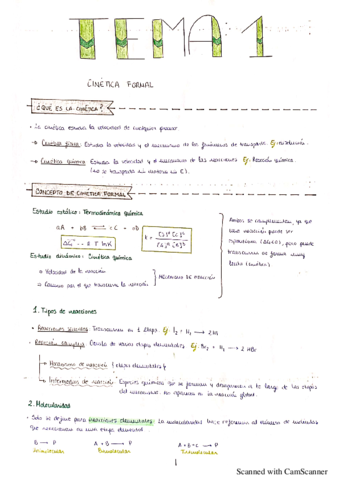 TEMA 1
CINÉTICA FORMAL
¿QUÉ ES LA CINÉTICA?
La cinética estudia la velocidad de cualquier proceso
Cinética física: Estudia la velocidad y el mecanismo de los fenómenos de transporte. Ej:
Cinética química: Estudia la velocidad y el mecanismo de las reacciones. Ej: Reacción química.
(no se transporta ni materia ni E).
CONCEPTO DE CINÉTICA FORMAL
Estudio estático: Termodinámica química
aA + bB ⇌ cC + dD
ΔG° = -RT ln K
K = [C]ᶜ [D]ᵈ / [A]ᵃ [B]ᵇ
Ambos se complementan, ya que
una reacción puede ser
espontánea (ΔG<0), pero puede
transcurrir de forma muy
lenta (cinética)
Estudio dinámico: Cinética química
Velocidad de la reacción
Camino por el que transcurre la reacción
MECANISMO DE REACCIÓN
1. Tipos de reacciones
Reacciones elementales: Transcurren en 1 etapa. Ej: I₂ + H₂ → 2HI
Reacción compleja: Consta de varias etapas elementales. Ej: Br₂ + H₂ → 2 HBr
Mecanismo de reacción: { etapas elementales }
Intermedios de reacción: Especies químicas que se forman y desaparecen a lo largo de las etapas
del mecanismo. No aparecen en la reacción global.
2. Molecularidad
Sólo se define para reacciones elementales. La molecularidad hace referencia al número de moléculas
que intervienen en una etapa elemental
A → P
A + B → P
A + B + C → P
Unimolecular
Bimolecular
Termolecular
1
Scanned with CamScanner